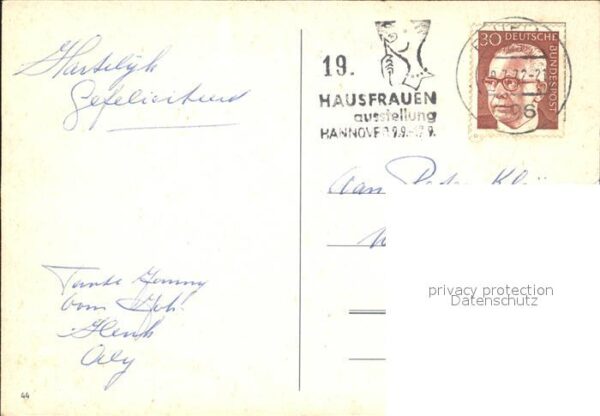 Hartelijk
Gefeliciteerd
Tante Jenny
oom Joh.
Henk
Aly
44
19.
HAUSFRAUEN
ausstellung
HANNOVER 9.9.-17.9.
30 DEUTSCHE
BUNDESPOST
Aan
privacy protection
Datenschutz